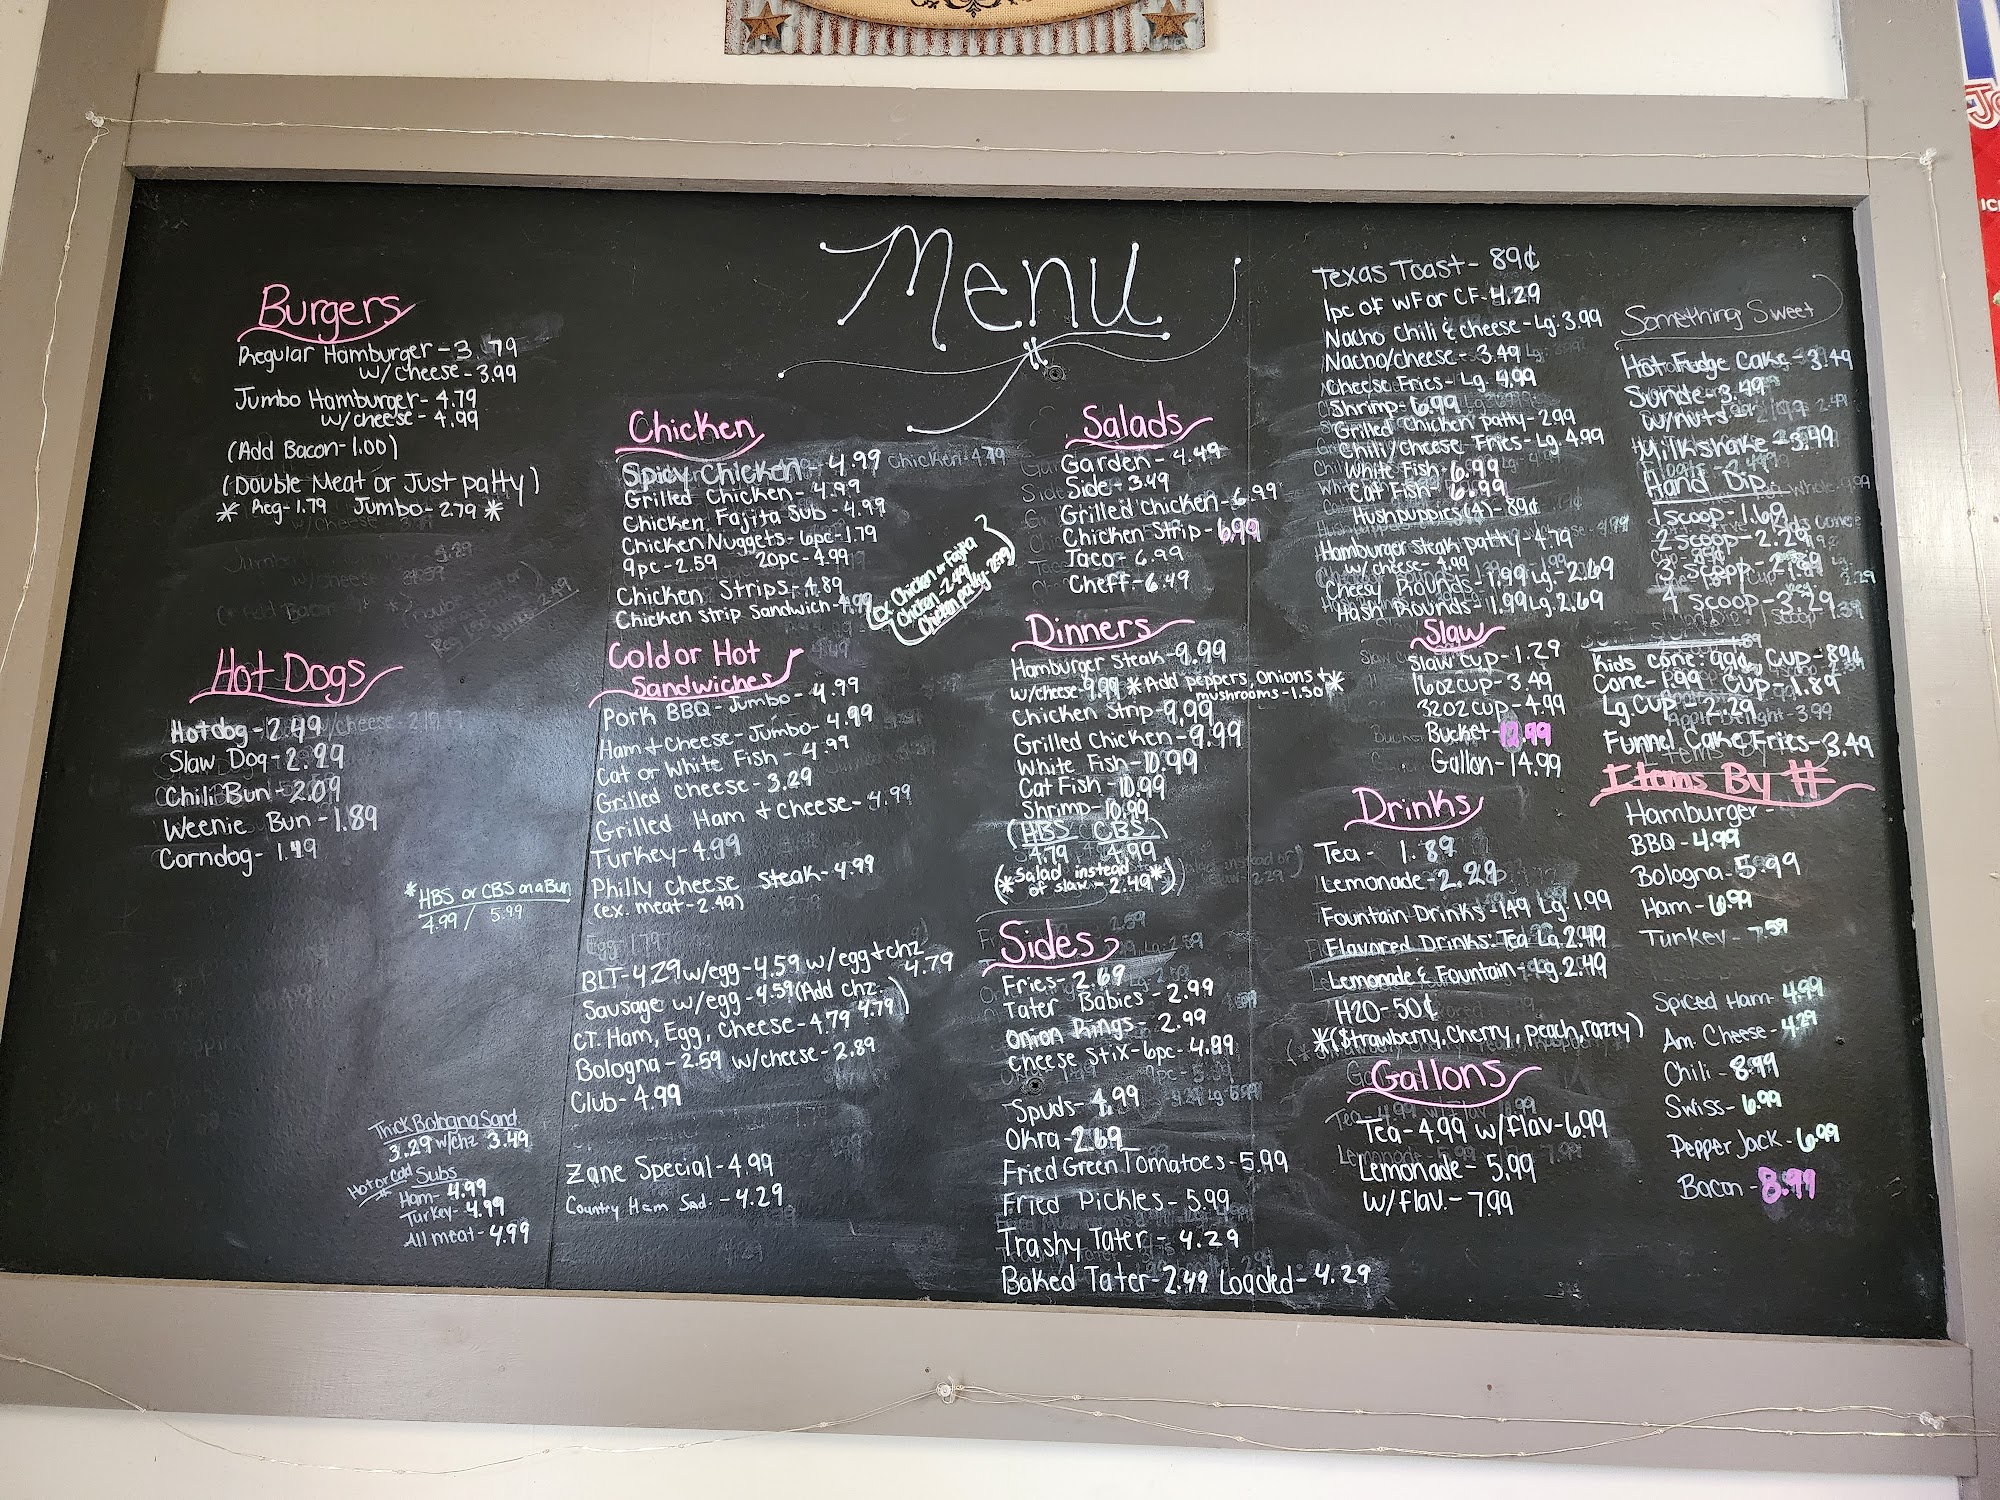 Menu
Burgers
Regular Hamburger - 3.79
w/cheese - 3.99
Jumbo Hamburger - 4.79
w/cheese - 4.99
(Add Bacon - 1.00)
(Double Meat or Just patty)
* Reg - 1.79 Jumbo - 2.79 *
Hot Dogs
Hotdog - 2.49
Slaw Dog - 2.99
Chili Bun - 2.09
Weenie Bun - 1.89
Corndog - 1.49
* HBS or CBS on a Bun
4.99 / 5.99
Thick Bologna Sand
3.29 w/chz 3.49
Hot or Cold Subs
Ham - 4.99
Turkey - 4.99
All meat - 4.99
Chicken
Spicy Chicken - 4.99
Grilled Chicken - 4.99
Chicken Fajita Sub - 4.99
Chicken Nuggets - 6pc - 1.79
9pc - 2.59 20pc - 4.99
Chicken Strips - 4.89
Chicken Strip Sandwich - 4.99
(Ex. Chicken or Fajita
Chicken - 2.49
Chicken patty - 2.99)
Cold or Hot
Sandwiches
Pork BBQ - Jumbo - 4.99
Ham + Cheese - Jumbo - 4.99
Cat or White Fish - 4.99
Grilled Cheese - 3.29
Grilled Ham + Cheese - 4.99
Turkey - 4.99
Philly Cheese Steak - 4.99
(ex. meat - 2.49)
BLT - 4.29 w/egg - 4.59 w/egg + chz
4.79
Sausage w/egg - 4.59 (Add chz.
4.79)
CT. Ham, Egg, Cheese - 4.79
Bologna - 2.59 w/cheese - 2.89
Club - 4.99
Zane Special - 4.99
Country Ham Snd. - 4.29
Salads
Garden - 4.49
Side - 3.49
Grilled Chicken - 6.99
Chicken Strip - 6.99
Taco - 6.99
Cheff - 6.49
Dinners
Hamburger Steak - 9.99
w/cheese - 9.99 * Add peppers, onions +
mushrooms - 1.50 *
Chicken Strip - 9.99
Grilled Chicken - 9.99
White Fish - 10.99
Cat Fish - 10.99
Shrimp - 10.99
(HBS CBS)
4.79 4.99
(* Salad instead *
of slaw - 2.49)
Sides
Fries - 2.69
Tater Babies - 2.99
Onion Rings - 2.99
Cheese Stix - 6pc - 4.99
Spuds - 4.99
Okra - 2.69
Fried Green Tomatoes - 5.99
Fried Pickles - 5.99
Trashy Tater - 4.29
Baked Tater - 2.49 Loaded - 4.29
Texas Toast - 89¢
1pc of WF or CF - 4.29
Nacho Chili & Cheese - Lg. 3.99
Nacho/Cheese - 3.49
Cheese Fries - Lg. 4.99
Shrimp - 6.99
Grilled Chicken patty - 2.99
Chili/Cheese Fries - Lg 4.99
White Fish - 6.99
Cat Fish - 6.99
Hushpuppies (4) - 89¢
Hamburger Steak patty - 4.79
w/cheese - 4.99
Cheesy Rounds - 1.99 Lg. - 2.69
Hash Rounds - 1.99 Lg. 2.69
Slaw
Slaw Cup - 1.29
16oz cup - 3.49
32oz cup - 4.99
Bucket - 12.99
Gallon - 14.99
Drinks
Tea - 1.89
Lemonade - 2.29
Fountain Drinks - 1.49 Lg. 1.99
Flavored Drinks: Tea Lg 2.49
Lemonade & Fountain - Lg. 2.49
H2O - 50¢
*(Strawberry, Cherry, peach, razzy)
Gallons
Tea - 4.99 w/flav - 6.99
Lemonade - 5.99
w/flav. - 7.99
Something Sweet
Hot Fudge Cake - 3.49
Sunde - 3.49
w/nuts
Milkshake - 3.49
Hand Dip
1 Scoop - 1.69
2 Scoop - 2.29
3 Scoop - 2.89
4 Scoop - 3.29
Kids cone: 99¢, Cup - 89¢
Cone - 1.99 Cup - 1.89
Lg. Cup - 2.29
Funnel Cake Fries - 3.49
Items By #
Hamburger -
BBQ - 4.99
Bologna - 5.99
Ham - 6.99
Turkey - 7.59
Spiced Ham - 4.99
Am. Cheese - 4.29
Chili - 8.99
Swiss - 6.99
Pepper Jack - 6.99
Bacon - 8.99